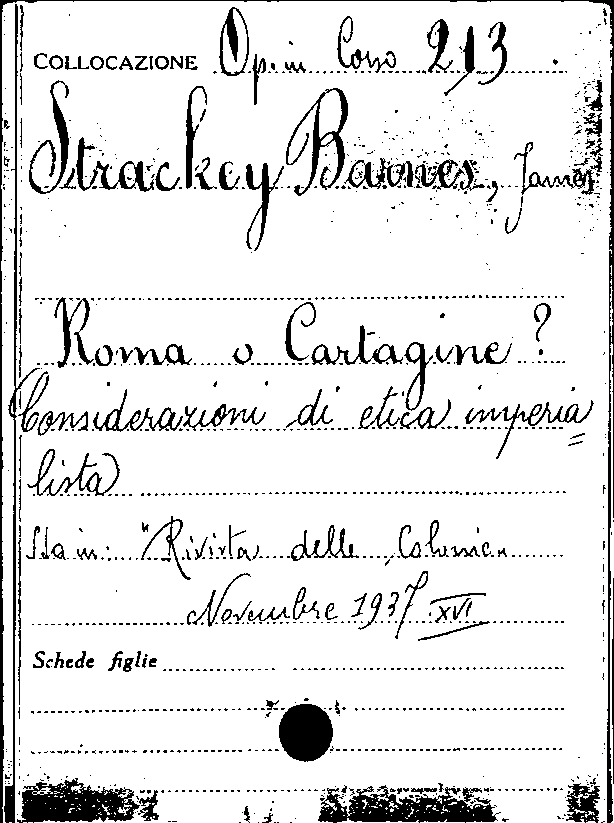 COLLOCAZIONE Op. in Corso 213.
Strackey Barnes, James
Roma o Cartagine?
Considerazioni di etica imperia=
lista
Sta in: "Rivista delle Colonie"
Novembre 1937 XVI
Schede figlie